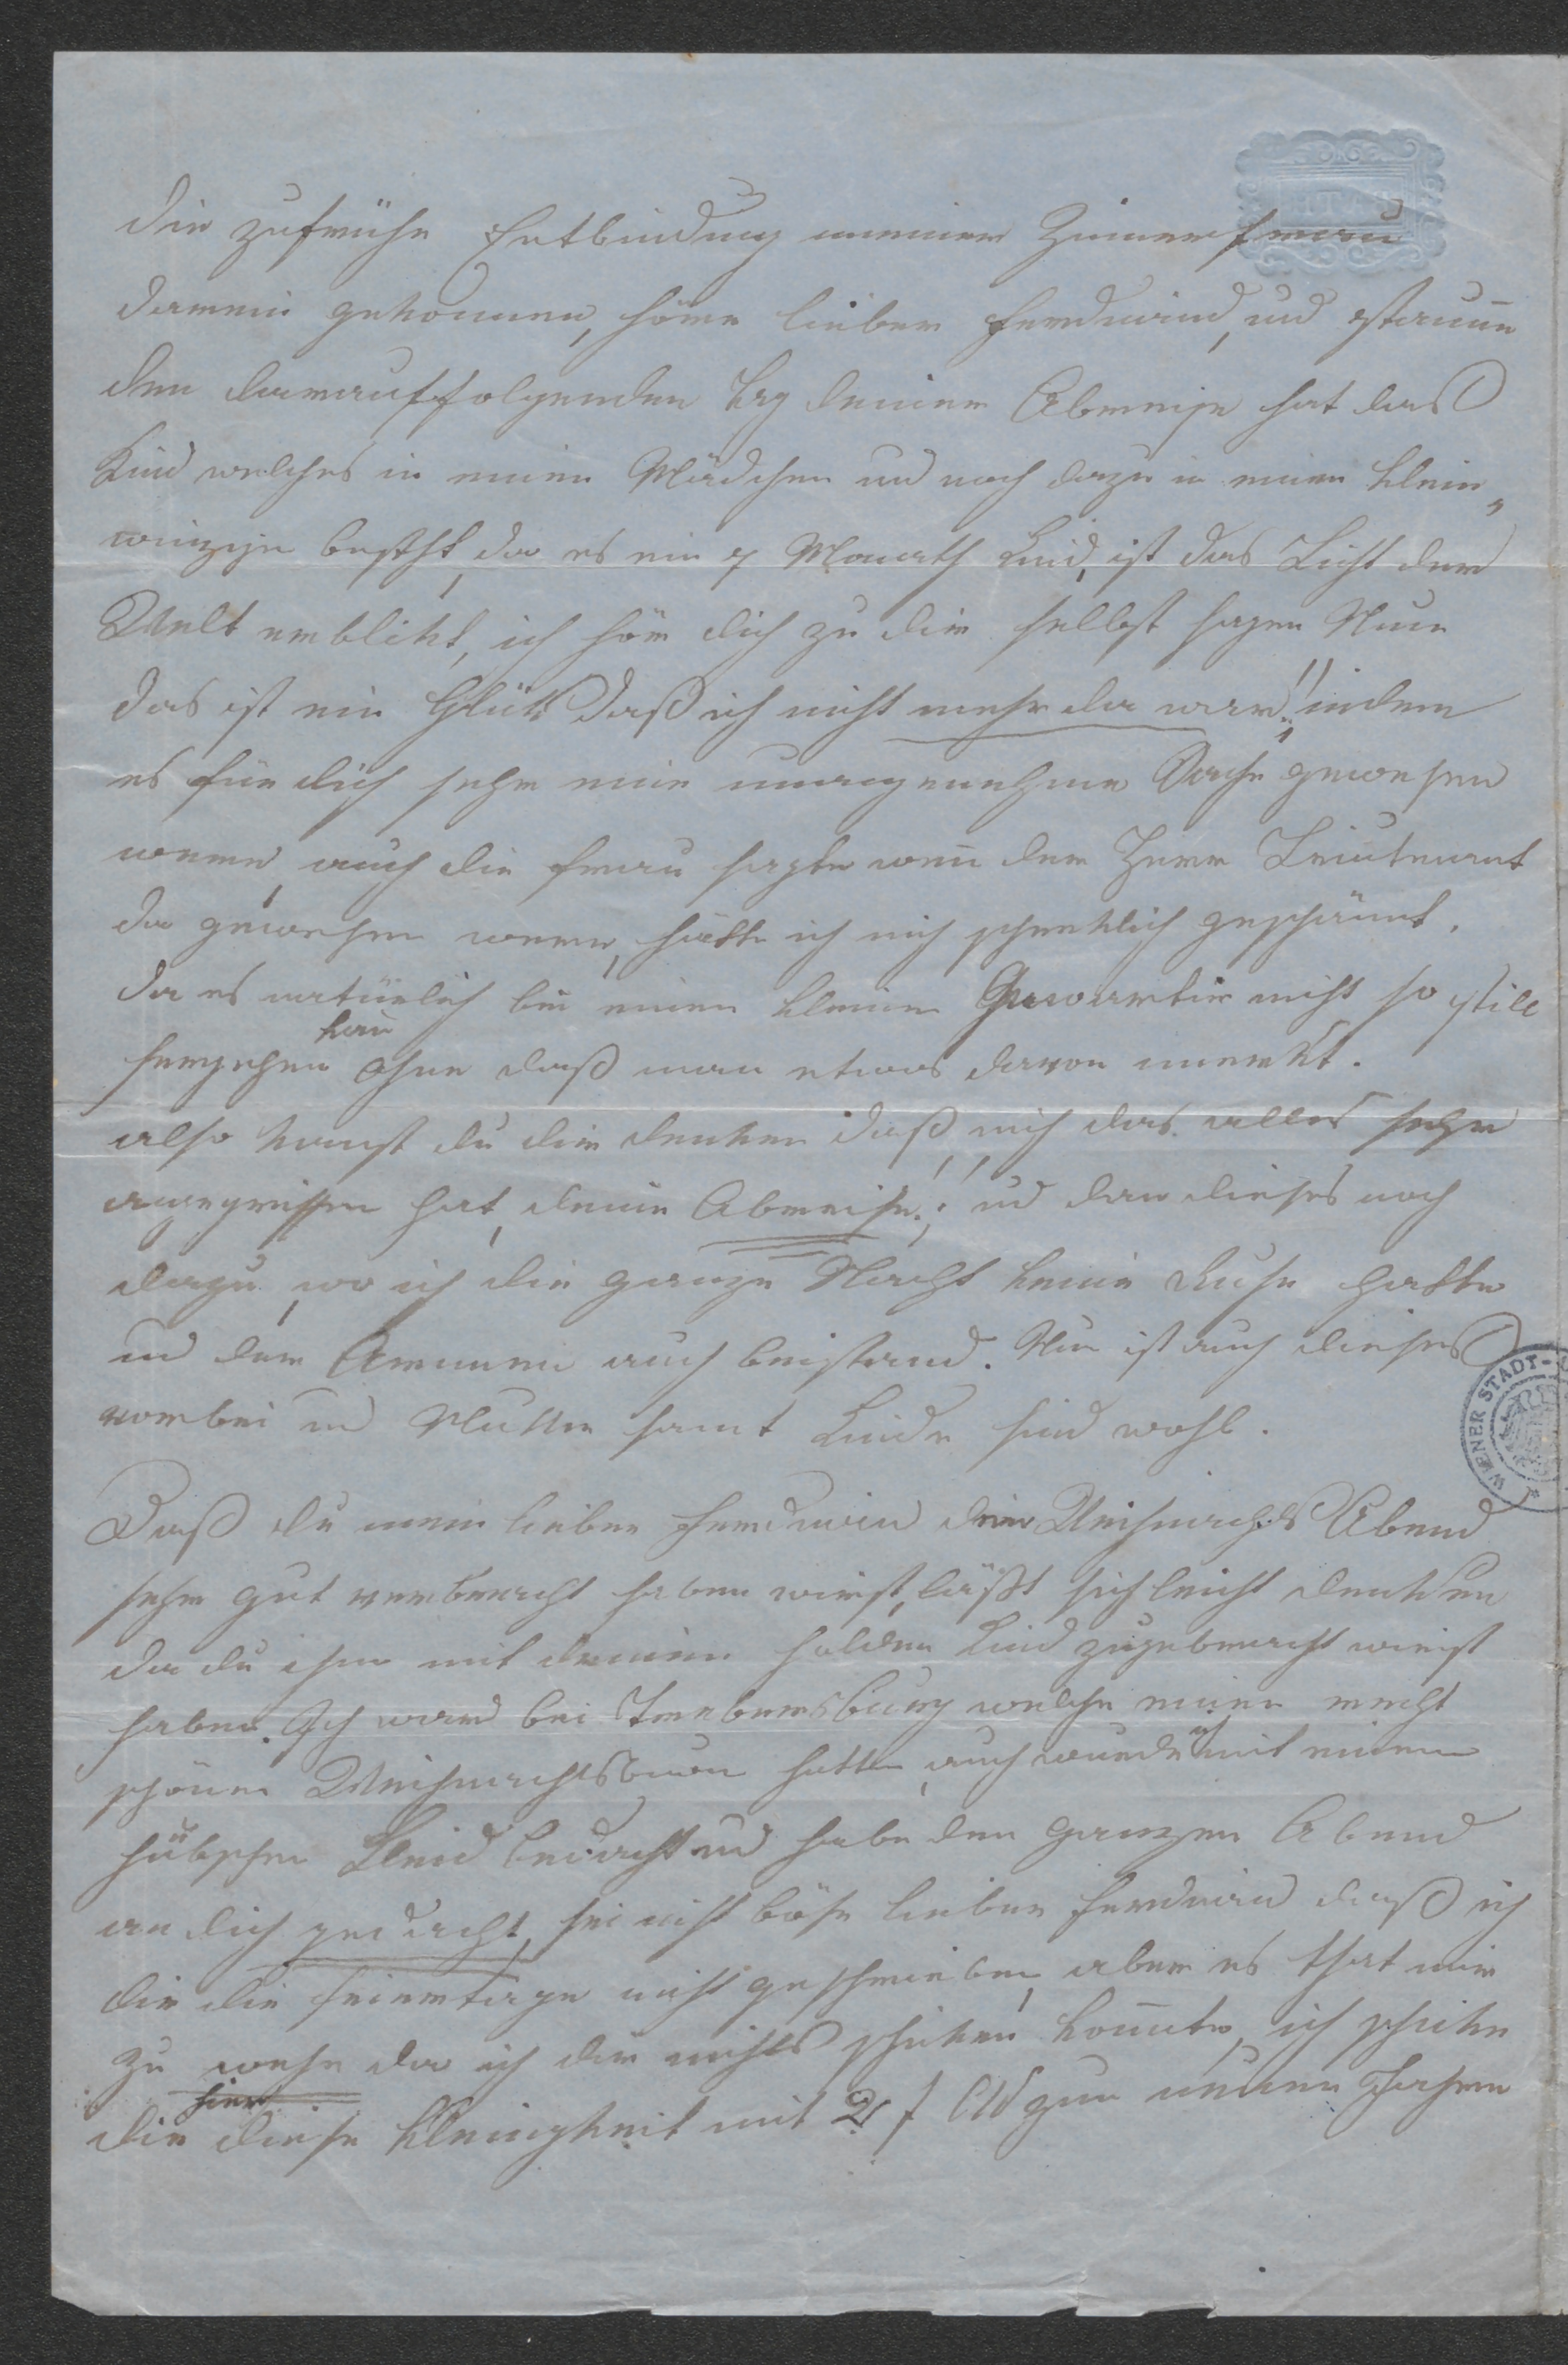 die zufrühe Entbindung meiner Zimmerfrau
darein gekommen, höre lieber Ferdinand, und staune
den darauffolgenden Tag deiner Abreise hat das
Kind welches in einen Mädchen und noch dazu in einen klein„
winzigen besteht, da es ein 7 Monath Kind, ist das Licht der
Welt erblikt, ich höre dich zu dir selbst sagen Nun
das ist ein Glück daß ich nicht mehr da war!! indem
es für dich sehr eine unangenehme Sache gewesen
were, auch die Frau sagte wen̄ der Herr Leutenant
da gewesen were, hätte ich mich schreklich geschämt,
da es natürlich bei einen kleinen Quuartir nicht so still
hergehen kan̄ ohne daß man etwas davon merkt.
also kanst du dir denken daß mich das alles sehr
angegriffen hat, deine Abreise!! und dan dieses noch
dazu, wo ich die ganze Nacht keine Ruhe hatte
und der Armmen auch beistand. Nun ist auch dieses
vorbei und Mutter samt Kinde sind wohl.
Daß du mein lieber Ferdinand dein Weihnachts Abend
sehr gut verbracht haben wirst, läßt sich leicht denken
da du ihn mit deinen holden Kind zugebracht wirst
haben. Ich war bei Trebersburg welche einen recht
schönen Weihnachtsbaum hatten, auch wurde ich mit einem
hübschen Kleid bedacht und habe den ganzen Abend
an dich gedacht, sei nicht böse lieber Ferdinand daß ich
dir die Feiertage nicht geschrieben, aber es that mir
zu wehe da ich dir nichts schiken kon̄nte, ich schike
dir hier diese Kleinigkeit mit 2 f CM zum neuen Jahre
WIENER STADT-